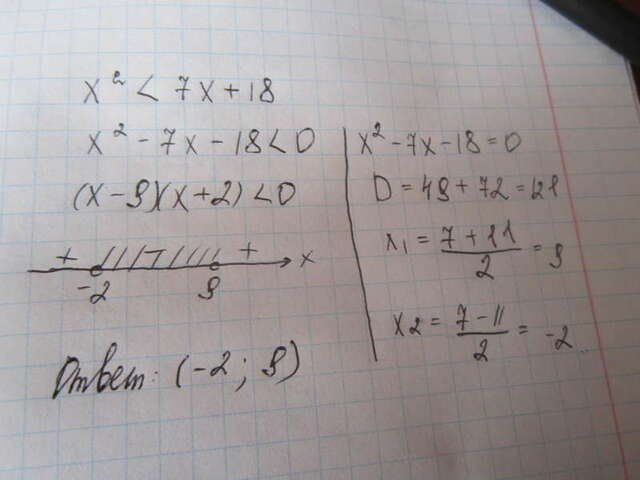 x² < 7x + 18
x² - 7x - 18 < 0
(x - 9)(x + 2) < 0
+ - + x
-2 9
Ответ: (-2; 9)
x² - 7x - 18 = 0
D = 49 + 72 = 121
x₁ = (7 + 11)/2 = 9
x₂ = (7 - 11)/2 = -2